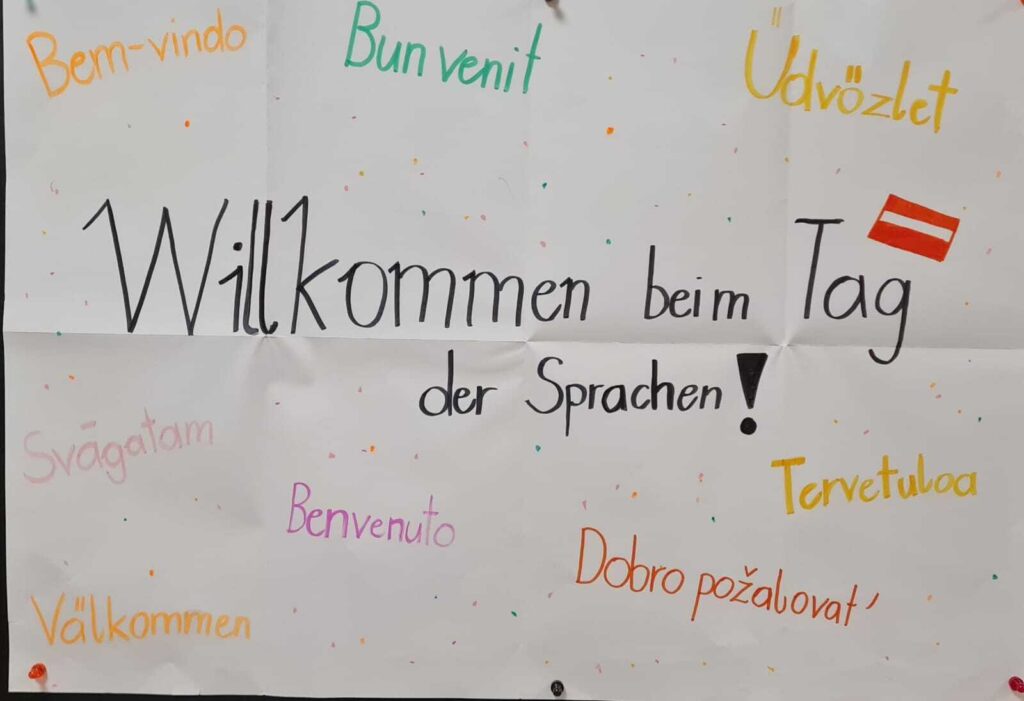 Bem-vindo
Bun venit
Üdvözlet
Willkommen beim Tag
der Sprachen!
Svāgatam
Benvenuto
Tervetuloa
Dobro požalovat'
Välkommen